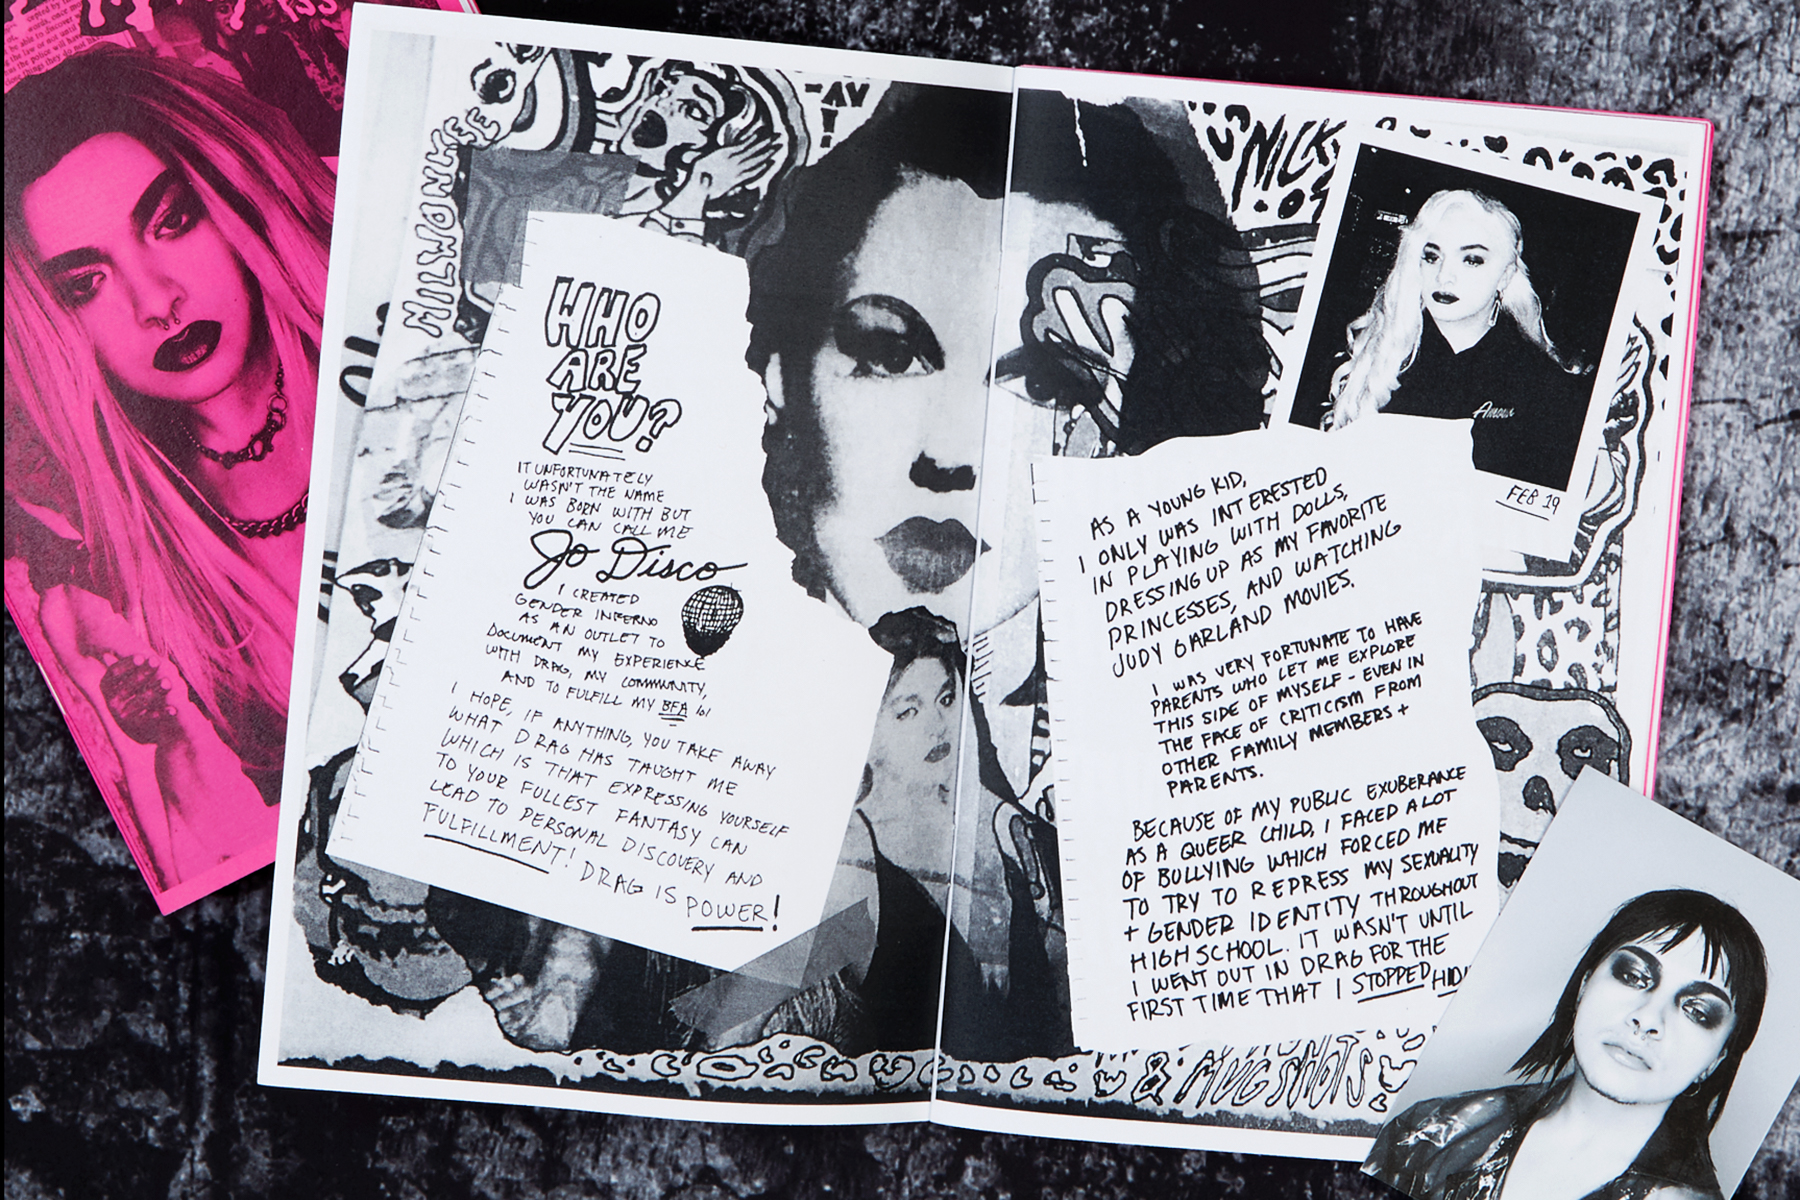 MILWONKEE
WHO
ARE
YOU?
IT UNFORTUNATELY
WASN'T THE NAME
I WAS BORN WITH BUT
YOU CAN CALL ME
Jo Disco
I CREATED
GENDER INFERNO
AS AN OUTLET TO
DOCUMENT MY EXPERIENCE
WITH DRAG, MY COMMUNITY,
AND TO FULFILL MY BFA lol
I HOPE, IF ANYTHING, YOU TAKE AWAY
WHAT DRAG HAS TAUGHT ME
WHICH IS THAT EXPRESSING YOURSELF
TO YOUR FULLEST FANTASY CAN
LEAD TO PERSONAL DISCOVERY AND
FULFILLMENT! DRAG IS
POWER!
FEB 19
AS A YOUNG KID,
I ONLY WAS INTERESTED
IN PLAYING WITH DOLLS,
DRESSING UP AS MY FAVORITE
PRINCESSES, AND WATCHING
JUDY GARLAND MOVIES.
I WAS VERY FORTUNATE TO HAVE
PARENTS WHO LET ME EXPLORE
THIS SIDE OF MYSELF - EVEN IN
THE FACE OF CRITICISM FROM
OTHER FAMILY MEMBERS +
PARENTS.
BECAUSE OF MY PUBLIC EXUBERANCE
AS A QUEER CHILD, I FACED A LOT
OF BULLYING WHICH FORCED ME
TO TRY TO REPRESS MY SEXUALITY
+ GENDER IDENTITY THROUGHOUT
HIGH SCHOOL. IT WASN'T UNTIL
I WENT OUT IN DRAG FOR THE
FIRST TIME THAT I STOPPED
& MUGSHOTS